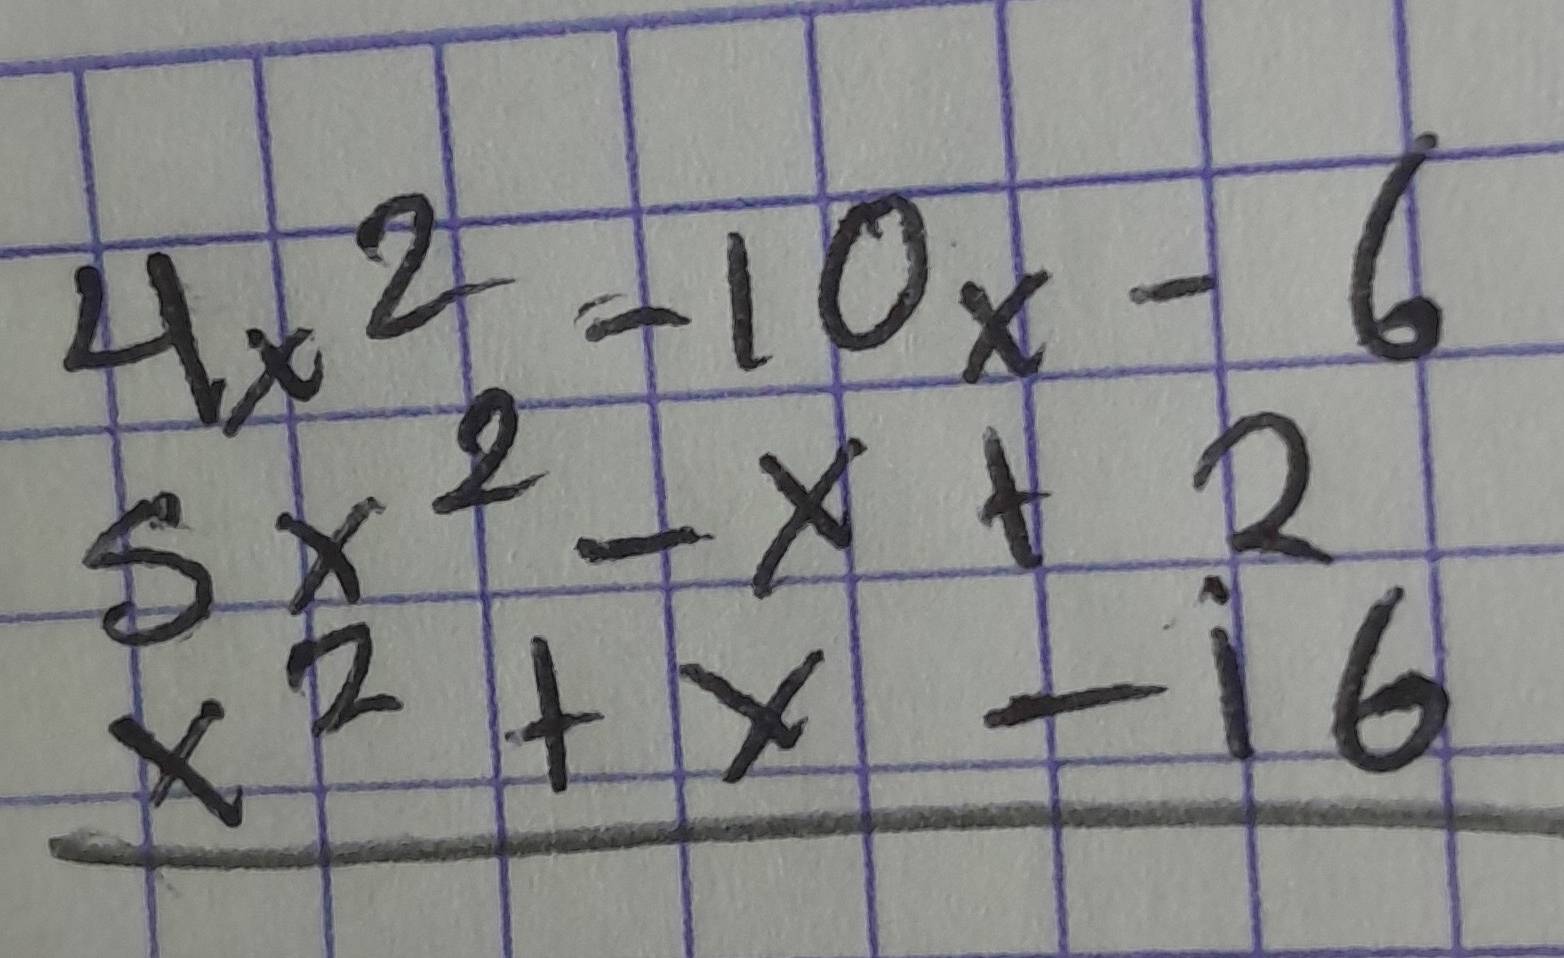 4x² - 10x - 6
5x² - x + 2
x² + x - 16